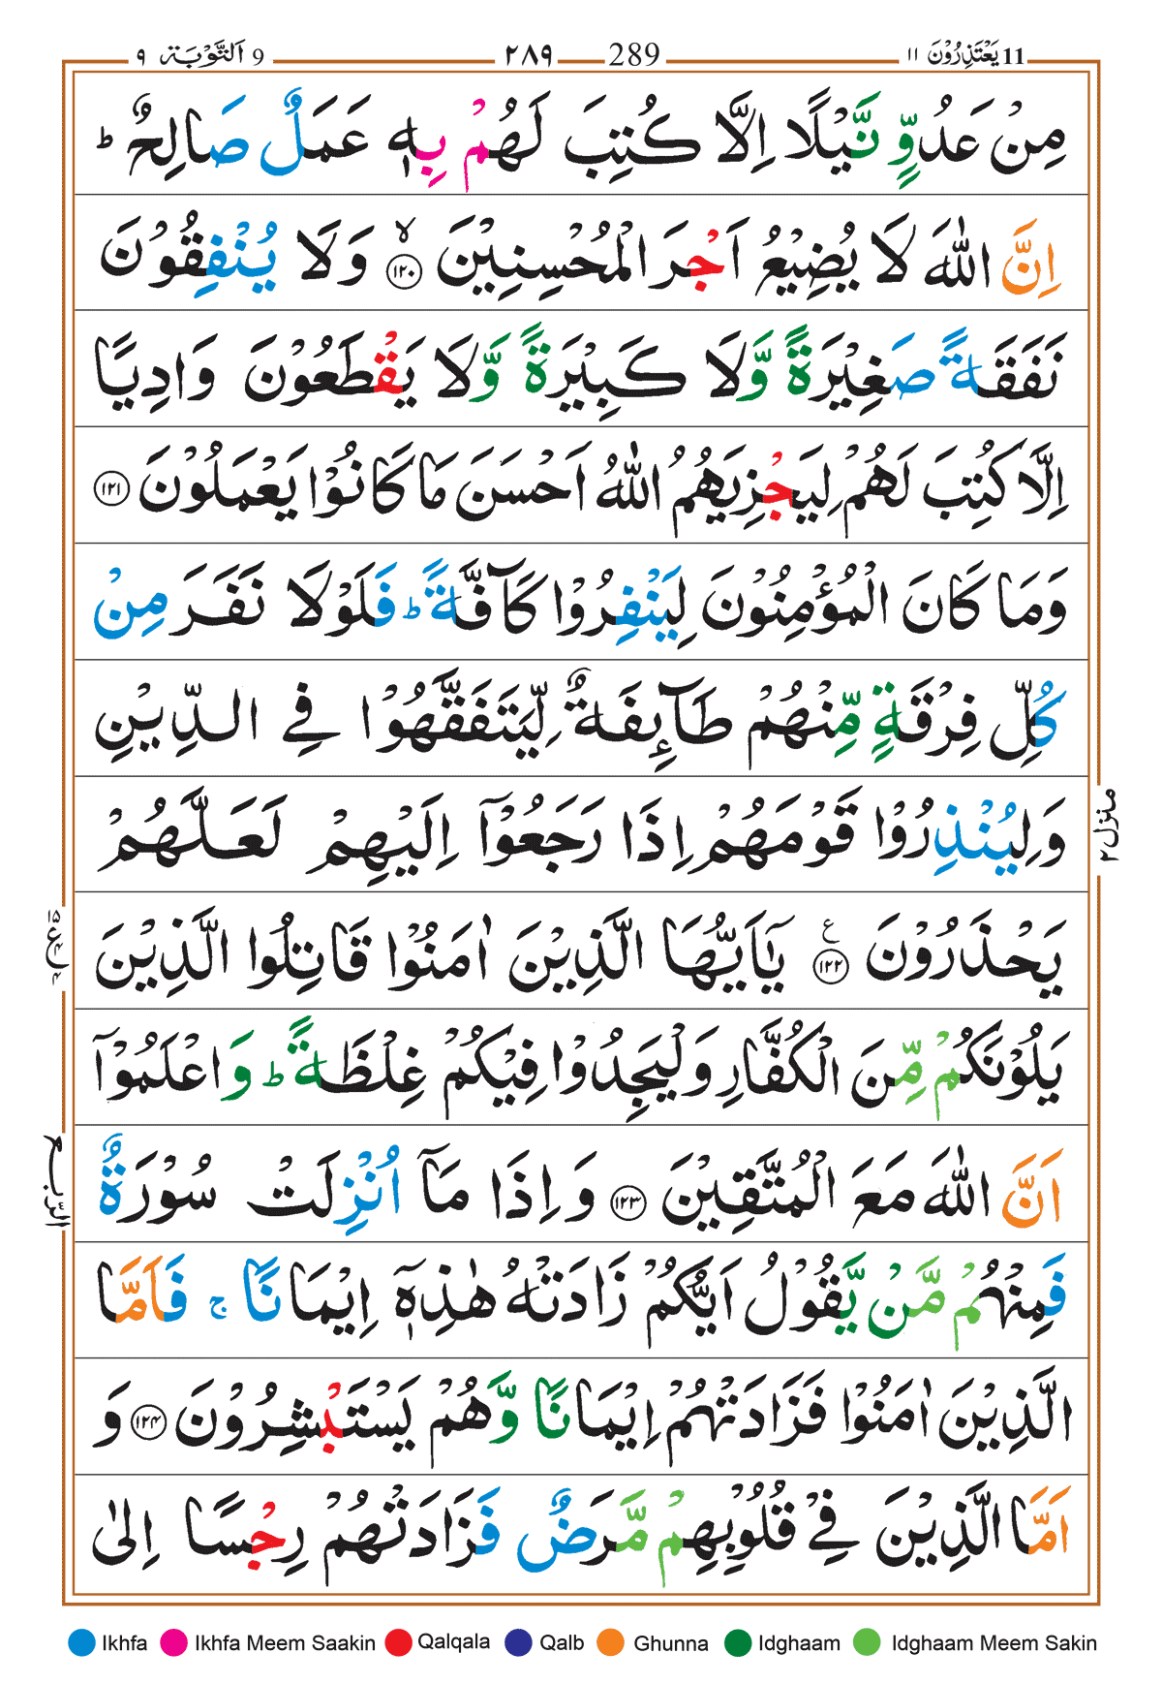 11 يَعْتَذِرُوْنَ ١١ 289 ٢٨٩ 9 اَلتَّوْبَة ٩
مِنْ عَدُوٍّ نَّيْلًا اِلَّا كُتِبَ لَهُمْ بِهٖ عَمَلٌ صَالِحٌ ؕ
اِنَّ اللّٰهَ لَا يُضِيْعُ اَجْرَ الْمُحْسِنِيْنَ ۙ﴿۱۲۰﴾ وَلَا يُنْفِقُوْنَ
نَفَقَةً صَغِيْرَةً وَّلَا كَبِيْرَةً وَّلَا يَقْطَعُوْنَ وَادِيًا
اِلَّا كُتِبَ لَهُمْ لِيَجْزِيَهُمُ اللّٰهُ اَحْسَنَ مَا كَانُوْا يَعْمَلُوْنَ ﴿۱۲۱﴾
وَمَا كَانَ الْمُؤْمِنُوْنَ لِيَنْفِرُوْا كَآفَّةً ؕ فَلَوْلَا نَفَرَ مِنْ
كُلِّ فِرْقَةٍ مِّنْهُمْ طَآىِٕفَةٌ لِّيَتَفَقَّهُوْا فِى الدِّيْنِ
وَلِيُنْذِرُوْا قَوْمَهُمْ اِذَا رَجَعُوْۤا اِلَيْهِمْ لَعَلَّهُمْ
يَحْذَرُوْنَ ﴿۱۲۲﴾ ع يٰۤاَيُّهَا الَّذِيْنَ اٰمَنُوْا قَاتِلُوا الَّذِيْنَ
يَلُوْنَكُمْ مِّنَ الْكُفَّارِ وَلْيَجِدُوْا فِيْكُمْ غِلْظَةً ؕ وَاعْلَمُوْۤا
اَنَّ اللّٰهَ مَعَ الْمُتَّقِيْنَ ﴿۱۲۳﴾ وَاِذَا مَاۤ اُنْزِلَتْ سُوْرَةٌ
فَمِنْهُمْ مَّنْ يَّقُوْلُ اَيُّكُمْ زَادَتْهُ هٰذِهٖۤ اِيْمَانًا ۚ فَاَمَّا
الَّذِيْنَ اٰمَنُوْا فَزَادَتْهُمْ اِيْمَانًا وَّهُمْ يَسْتَبْشِرُوْنَ ﴿۱۲۴﴾ وَ
اَمَّا الَّذِيْنَ فِىْ قُلُوْبِهِمْ مَّرَضٌ فَزَادَتْهُمْ رِجْسًا اِلٰى
منزل ٢
الرّبع
Ikhfa Ikhfa Meem Saakin Qalqala Qalb Ghunna Idghaam Idghaam Meem Sakin